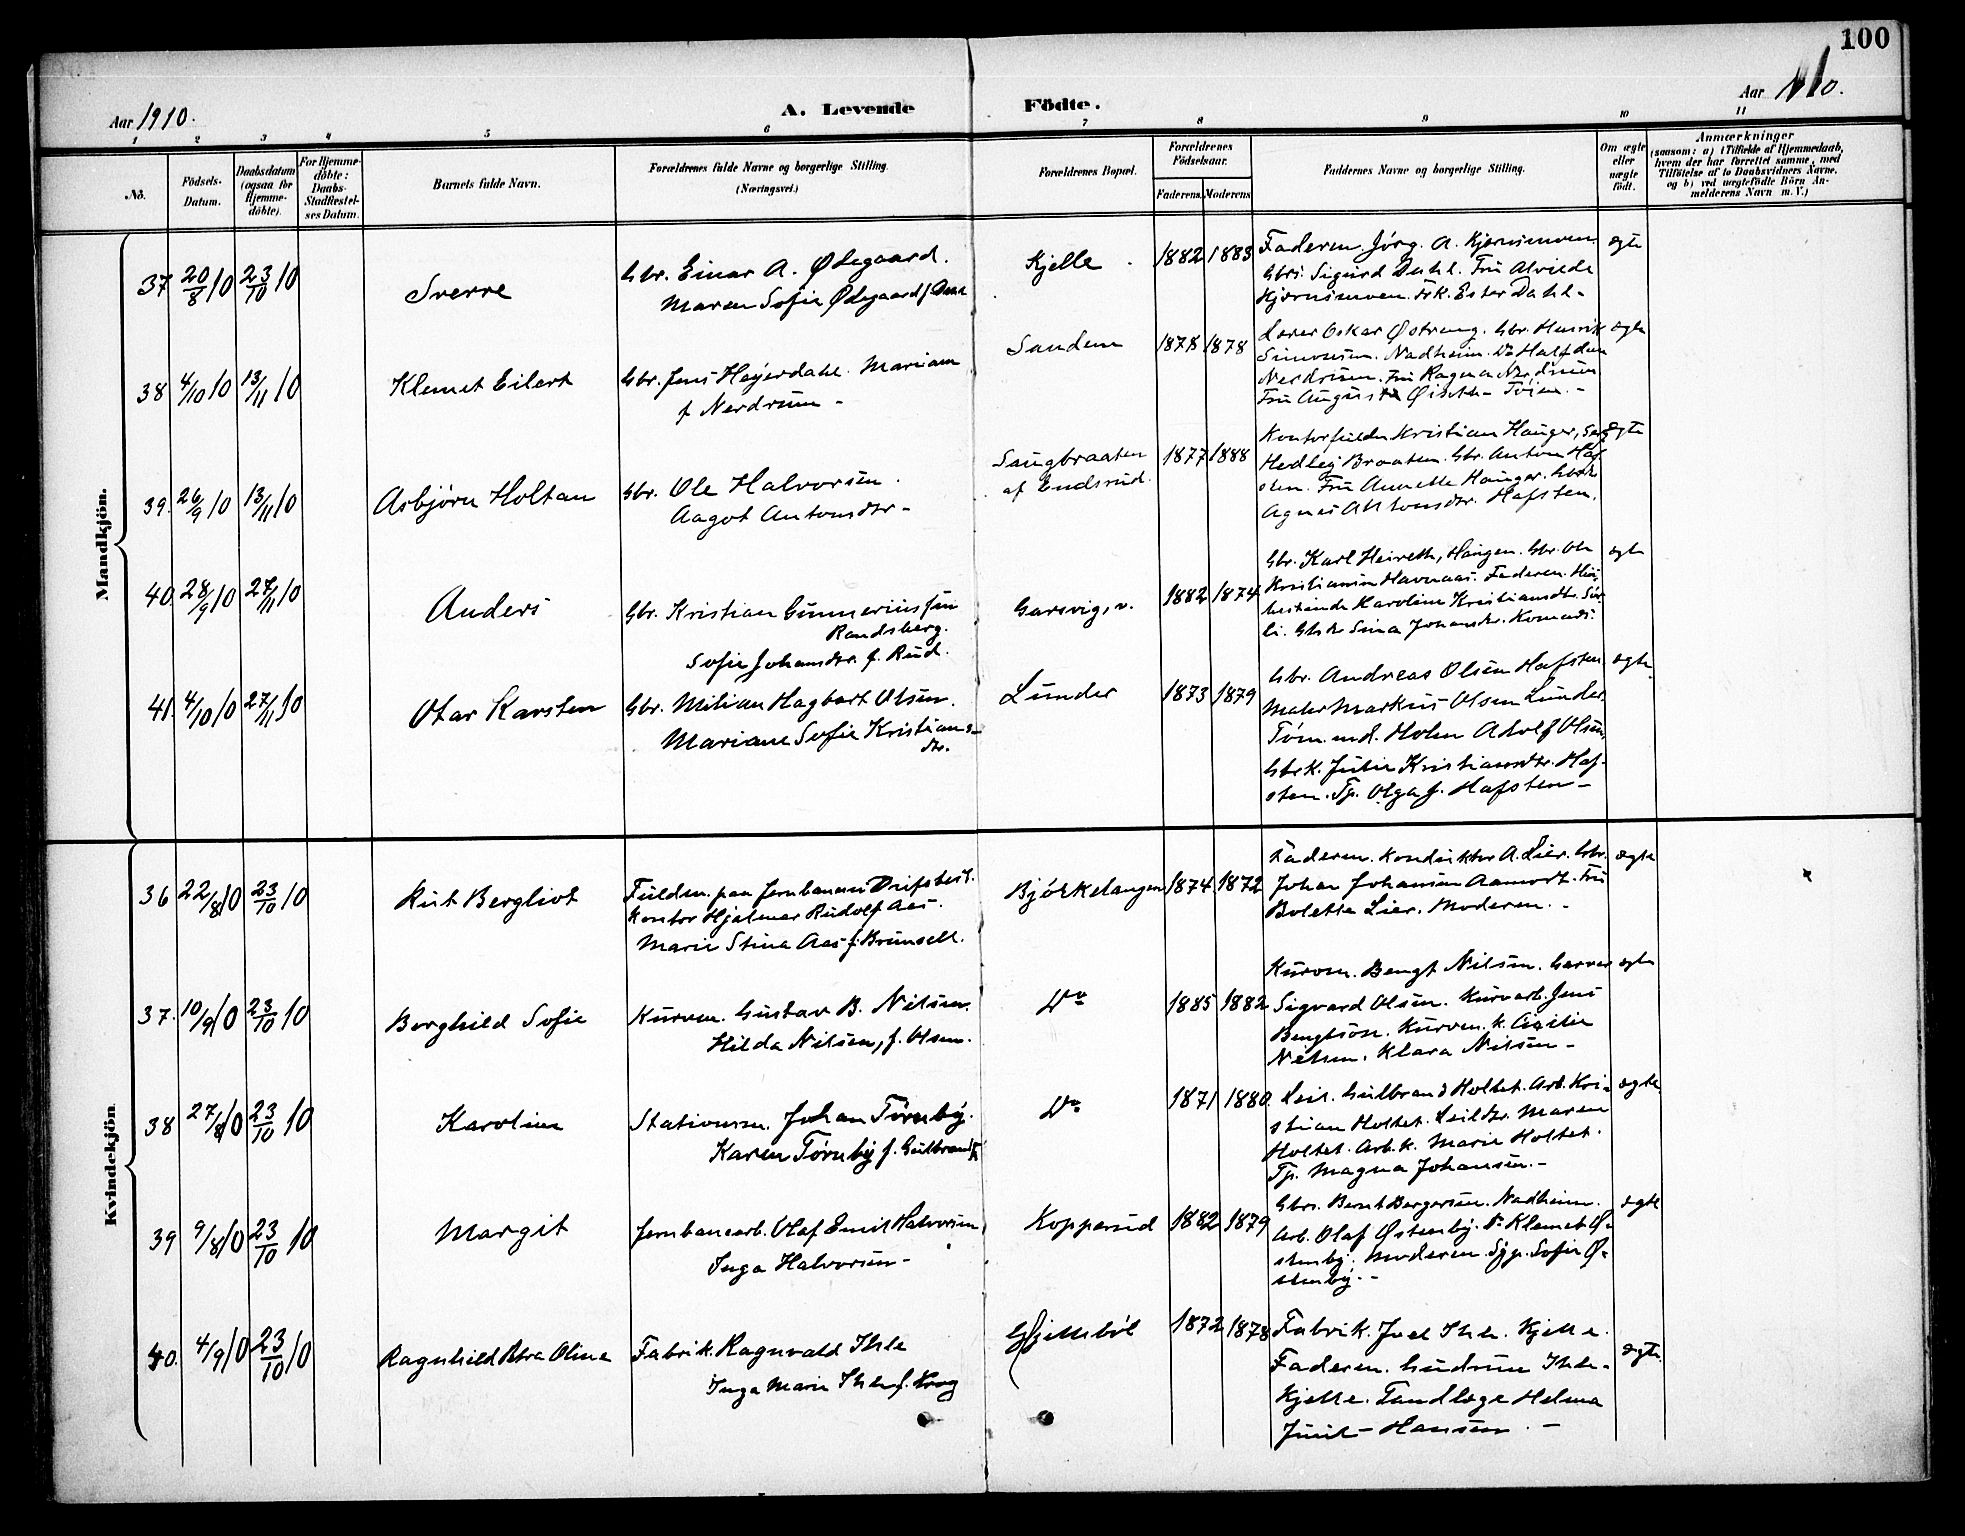 100
Aar 1910.
A. Levende
Födte.
Aar 1910.
1 2 3 4 5 6 7 8 9 10 11
No.
Födsels-Datum.
Daabsdatum (ogsaa for Hjemme-döbte).
For Hjemme-döbte: Daabs-Stadfæstel-ses Datum.
Barnets fulde Navn.
Forældrenes fulde Navne og borgerlige Stilling.
(Næringsvei.)
Forældrenes Bopæl.
Forældrenes Födselsaar.
Faderens. Moderens
Faddernes Navne og borgerlige Stilling.
Om ægte eller uægte födt.
Anmærkninger
(saasom: a) i Tilfælde af Hjemmedaab,
hvem der har forrettet samme, med
Tilföielse af to Daabsvidners Navne,
og b) ved uægtefödte Börn An-
melderens Navn m. V.)
Mandkjön.
37 20/8 10 23/10 10
Sverre
Gbr. Einar A. Ødegaard.
Maren Sofie Ødegaard f. Dahl
Kjelle
1882 1883
Faderen. Jørg. A. Kjørnsmoen
Gbrs. Sigurd Dahl. Fru Alvilde
Kjørnsmoen. Frk. Ester Dahl-
ægte
38 4/10 10 13/11 10
Klemet Eilert
Gbr. Jens Heyerdahl. Mariam
f. Nerdrum -
Sandem
1878 1878
Lærer Oskar Østreng. Gbr. Henrik
Simonsen. Nadheim. Do Halfdan
Nerdrum. Fru Ragna Nerdrum
Fru Augusta - Töien. -
ægte
39. 26/9 10 13/11 10
Asbjørn Holtan
Gbr. Ole Halvorsen.
Aagot Antonsdtr -
Saugbraaten
af Eudsrud.
1877 1888
Kontorfuldm Kristian Hauger,
Hedley Braaten. Gbr. Anton Haf-
sten. Fru Annette Hauger.
Agnes Antonsdtr. Hafsten.
ægte
40. 28/9 10 27/11 10
Anders
Gbr. Kristian Gunneriussen
Randsberg.
Sofie Johansdtr. f. Rud.
Garsvig, v.
1882 1874
Gbr. Karl Heireth, Haugen. Gbr. Ole
Kristiansen Havnaas. Faderen. Hus-
bestinde Karoline Kristiansdtr. Sør-
li. Gbdtr Sina Johansdtr. Komnæs.
ægte
41. 4/10 10 27/11 10
Otar Karsten
Gbr. Milian Hagbart Olsen.
Mariane Sofie Kristians-
dtr.
Lunder
1873 1879
Gbr. Andreas Olsen Hafsten
Maler Markus Olsen Lunder.
Tøm.md. Holm Adolf Olsen,
Gbr.k. Julie Kristiansdtr. Haf-
sten. Tp. Olga J. Hafsten -
ægte
Kvindekjön
36 22/8 10 23/10 10
Rut Bergliot
Fuldm. paa Jernbanens Driftsbest.
Kontor Hjalmar Rudolf Aas.
Marie Stina Aas f. Brunsell.
Bjørkelangen
1874. 1872
Faderen. Konduktør A. Lier. Gbr.
Johan Johansen Aamodt. Fru
Bolette Lier. Moderen. -
ægte
37. 10/9 10 23/10 10
Borghild Sofie
Kurvm. Gustav B. Nilsen.
Hilda Nilsen, f. Olsen.
Do
1885 1882
Kurvm. Bengt Nilsen. Garver
Sigvard Olsen. Kurvarb. Jens
Bengtson. Kurvm. k. Cecilie
Nilsen. Klara Nilsen -
ægte
38 27/8 10 23/10 10
Karoline
Stationsm. Johan Törnby.
Karen Törnby f. Gulbrands
Do
1871 1880.
Leil. Gulbrand Holtet. Arb. Kri-
stian Holtet. Leildtr. Maren
Holtet. Arb.k. Marie Holtet.
Tp. Magna Johansen. -
ægte
39 9/8 10 23/10 10
Margit
Jernbanearb. Olaf Emil Halvorsen
Inga Halvorsen -
Kopperud
1882 1879
Gbrs. Bernt Børgersen. Nadheim.
Arb. Olaf Østenby. Do Klemet Ø-
stenby. Moderen. Syp. Sofie Ø-
stenby. -
ægte
40. 4/9 10 23/10 10
Ragnhild Petra Oline
Fabrik. Ragnvald Ihle
Inga Marie Ihle f. Krog
Gjellebøl
1872 1878
Fabrik. Joel Ihle. Kjelle.
Faderen. Gudrun Ihle-
Kjelle. Tandlæge Helma
Juul-Hansen. -
ægte.